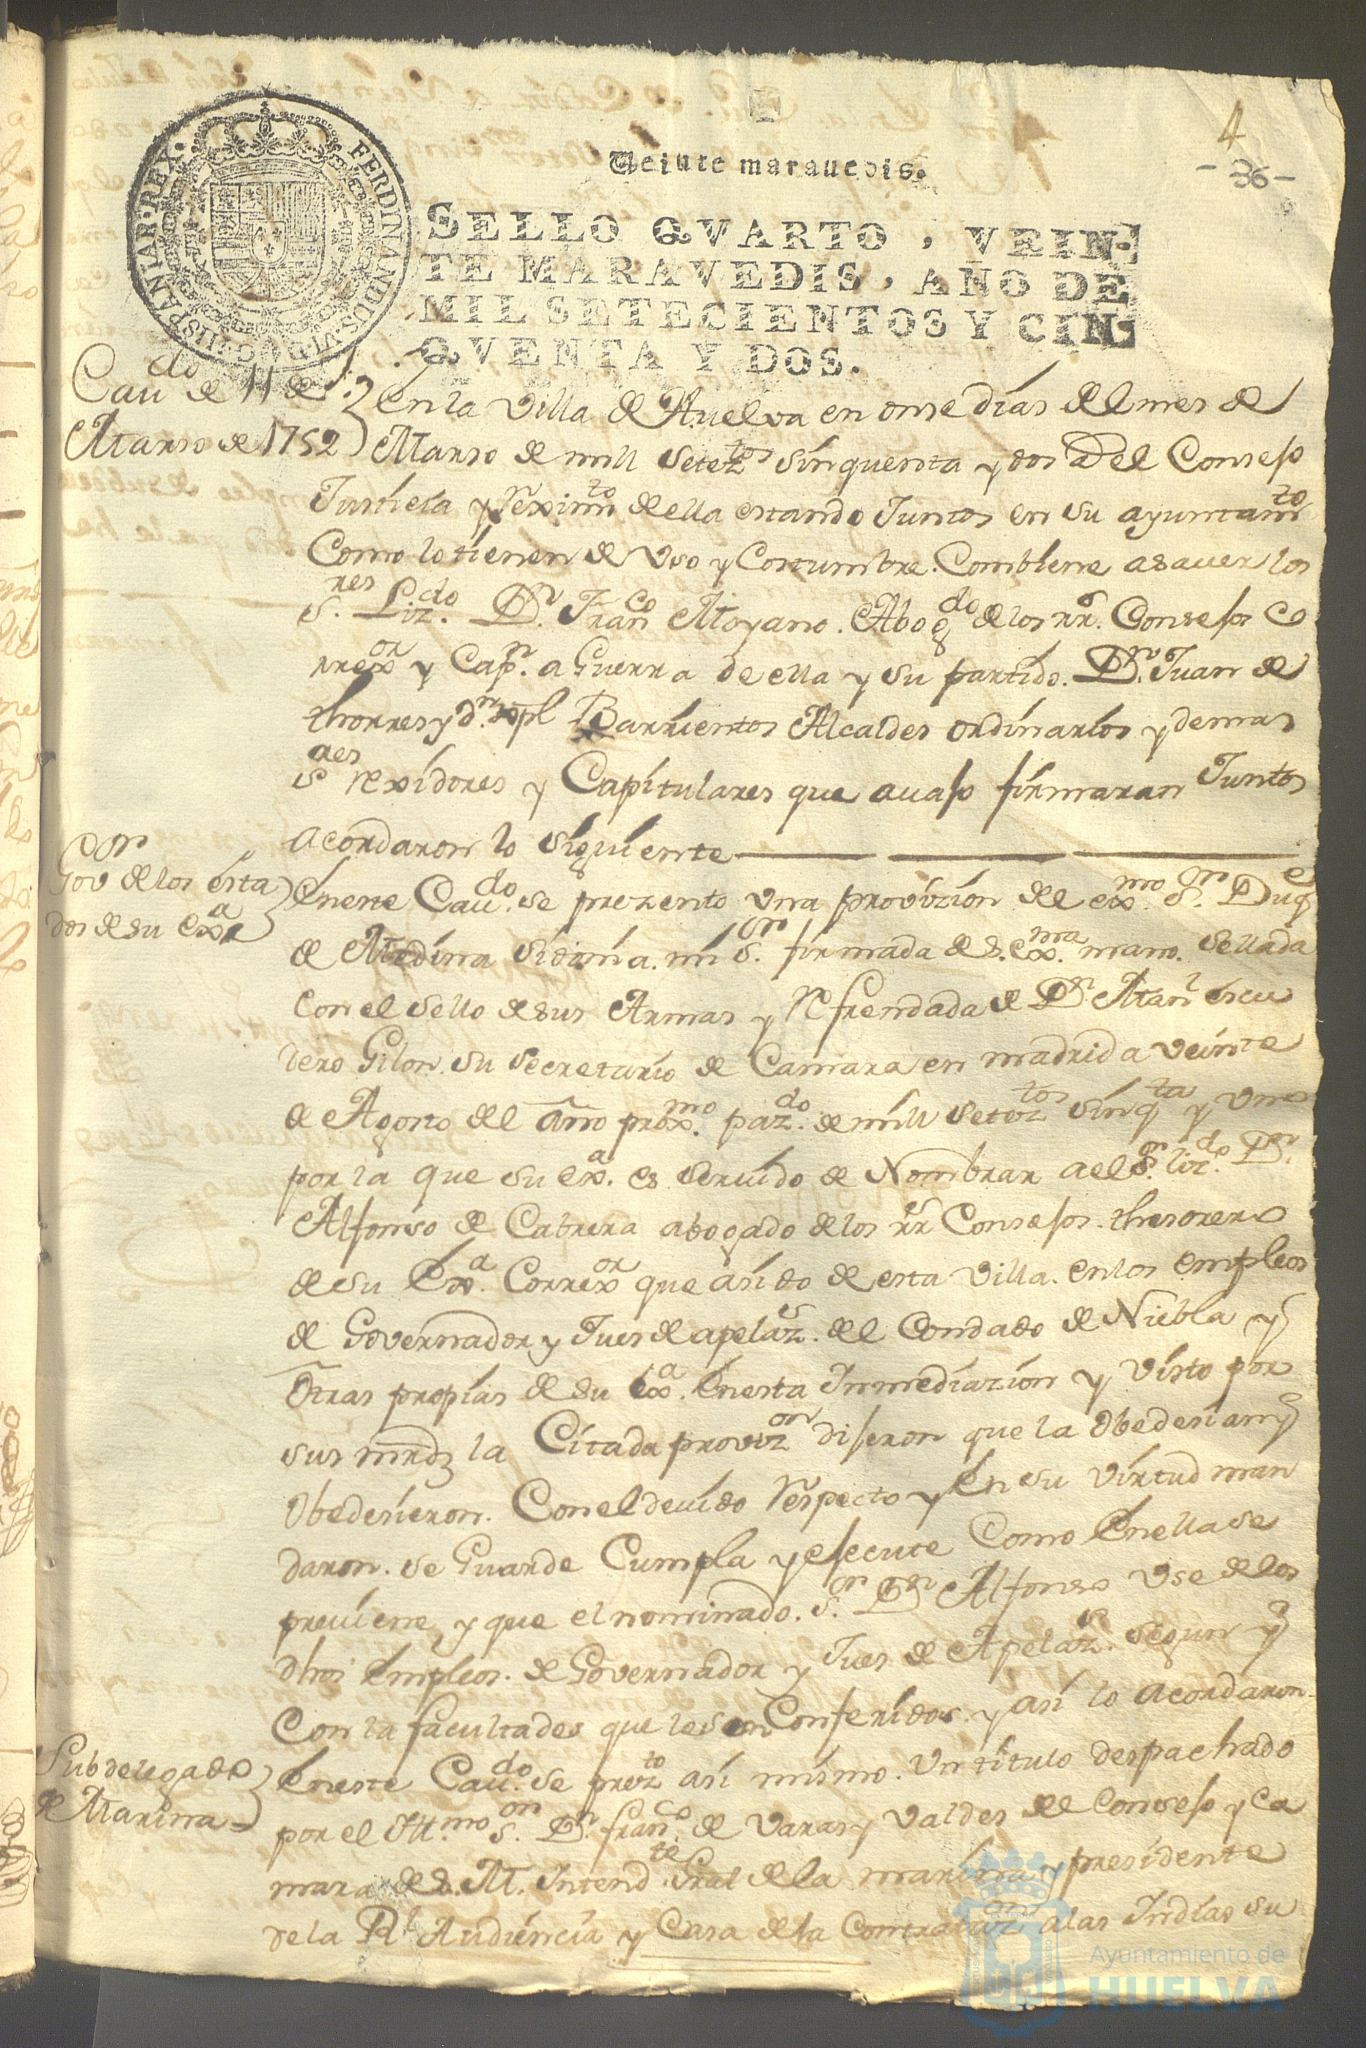 4
- 36 -
Veinte maravedis.
FERDINANDUS·VI·D·G·HISPANIAR·REX·
SELLO QVARTO, VEIN-
TE MARAVEDIS, AÑO DE
MIL SETECIENTOS Y CIN-
QVENTA Y DOS.
Cauᵈᵒ de 11 de
Marso de 1752
En la Villa de Huelva en onse días del mes de
Marso de mill Setezᵗᵒˢ Sinquenta y dos el Consejo
Justicia y Reximᵗᵒ de ella estando Juntos en su ayuntamᵗᵒ
Como lo tienen de Uso y Costumbre. Combiene asauer los
Sʳᵉˢ. Lizᵈᵒ. Dⁿ. Franᶜᵒ Moyano. Abogᵈᵒ de los RRˢ. Consejos Co
rrexᵒʳ y Capⁿ. a Guerra de ella y su partido. Dⁿ. Juan de
thorres y dⁿ. Xpl Barrientos Alcaldes ordinarios y demas
Sʳᵉˢ rexidores y Capitulares que auajo firmaran Juntos
acordaron lo siguiente
Cᵒʳ
Gov de los esta
dos de su exᵃ
Eneste Cauᵈᵒ. se prezento una provizion del exᵐᵒ. Sᵒʳ. Duqᵉ
de Medina Sidonia. mi Sᵒʳ. firmada de s. exᵐᵃ. mano. Sellada
con el Sello de sus Armas y Refrendada de Dⁿ Manˡ escu
dero Gilon. su Secretario de Camara en madrid a veinte
de Agosto del año proxᵐᵒ. pazᵈᵒ. de mill Setezᵗᵒˢ sinqᵗᵃ y uno
por la que su exᵃ. es servido de Nombrar a el Sᵒʳ. lizᵈᵒ. Dⁿ.
Alfonso de Cabrera abogado de los RRˢ Consejos. thesorero
de su Exᵃ. Correxᵒʳ que asido de esta Villa. en los empleos
de Governador y Jues de apelazˢ. del Condado de Niebla y
Otras propias de su exᵃ. Enesta Inmediazion y visto por
sus mrdz la Citada provizᵒⁿ dijeron que la Obedesian y
Obedesieron. Con el deuido Respecto y En su virtud man
daron. se Guarde Cumpla y ejecute Como Enella se
preuiene y que el nominado. Sᵒʳ. Dⁿ Alfonso use de los
dhos Empleos. de Governador y Jues de Apelazˢ. segun y
Con la facultades que le son Conferidas. y asi lo acordaron.
Subdelegado
de Marina
Eneste Cauᵈᵒ. se prezᵗᵒ asi mismo. Un titulo despachado
por el Illᵐᵒ Sᵒʳ. Dⁿ. franᶜᵒ. de Varas y Valdes del Consejo y Ca
mara de S. M. Intendᵗᵉ. Gral de la marina y presidente
de la Rˡ Audiencia y Casa de la Contratazᵒⁿ a las Indias su
Ayuntamiento de
HUELVA